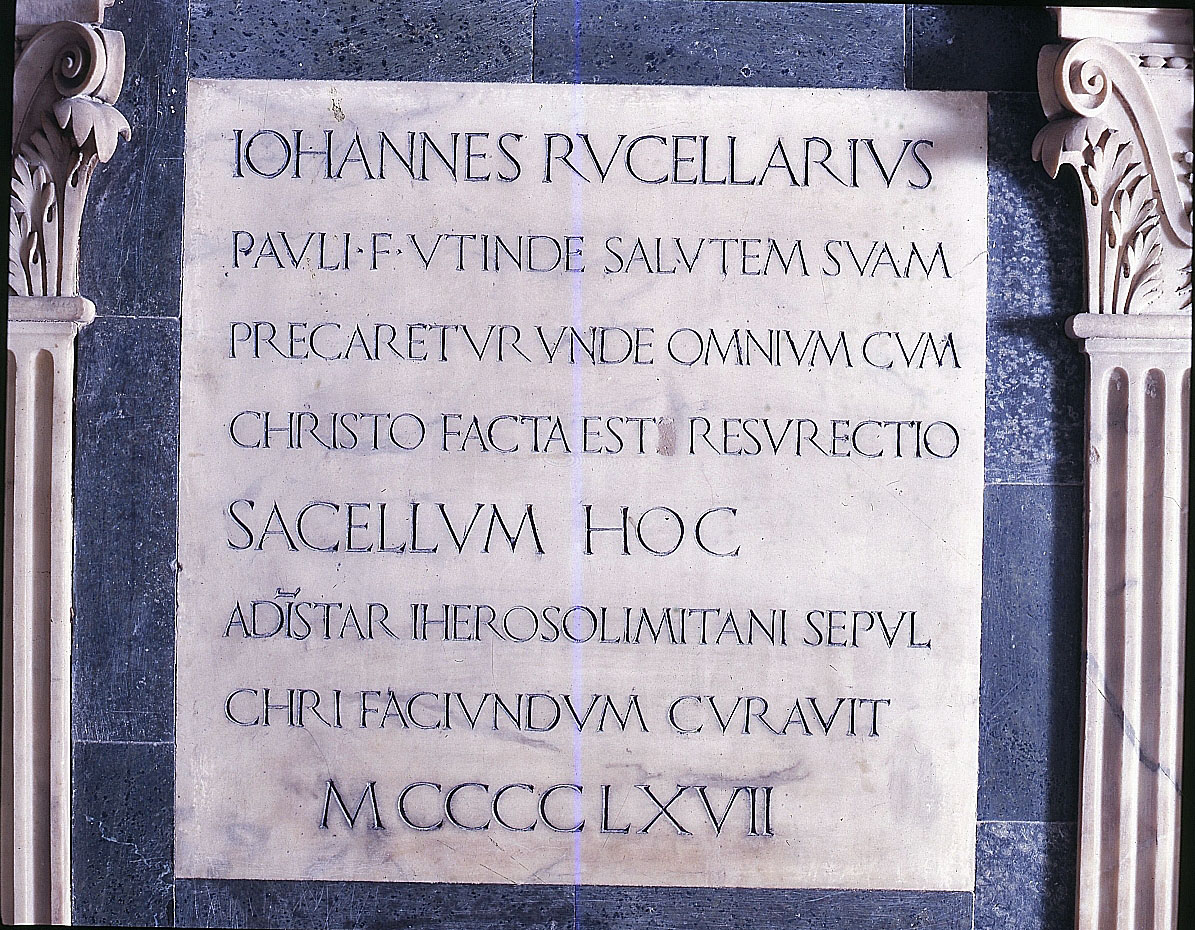 IOHANNES RVCELLARIVS
PAVLI·F·VTINDE SALVTEM SVAM
PRECARETVR VNDE OMNIVM CVM
CHRISTO FACTA EST RESVRECTIO
SACELLVM HOC
ADĪSTAR IHEROSOLIMITANI SEPVL
CHRI FACIVNDVM CVRAVIT
MCCCCLXVII